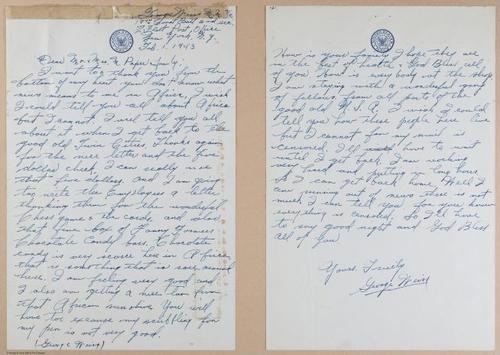 George Weiss
New York, N.Y.
Feb. 1, 1943
Dear Mr. & Mrs. Paper & family:
I want to thank you from the
bottom of my heart you don't know what
news meant to me in Africa, I wish
I could tell you all about Africa
but I cannot. I will tell you all
about it when I get back to the
good old Twin Cities, Thanks again
for the nice letter and the five
dollars check, I can really use
that five dollars, and I am going
to write the Employees a letter
thanking them for the wonderful
Chess game & the cards and also
that fine box of Fanny Farmers
Chocolate Candy bars, Chocolate
candy is very scarce here in Africa
that is something that is rare around
here, I am feeling very good and
I also am getting a nice tan from
that African sunshine. You will
have to excuse my scribbling for
my pen is not very good.
(George Weiss)
How is your family I hope they are
in the best of health & God Bless all
of you. How is everybody at the shop
I am staying with a wonderful gang
of fellows, from all parts of the
good old U.S.A. I wish I could
tell you how these people here live
but I cannot for my mail is
censored. I'll have to wait
until I get back. I am working
very hard and putting in long hours.
As I can get back home. Well I
am running out of news there is not
much I can tell you for you know
everything is censored, So I'll have
to say good night and God Bless
all of you
Yours Truly
George Weiss